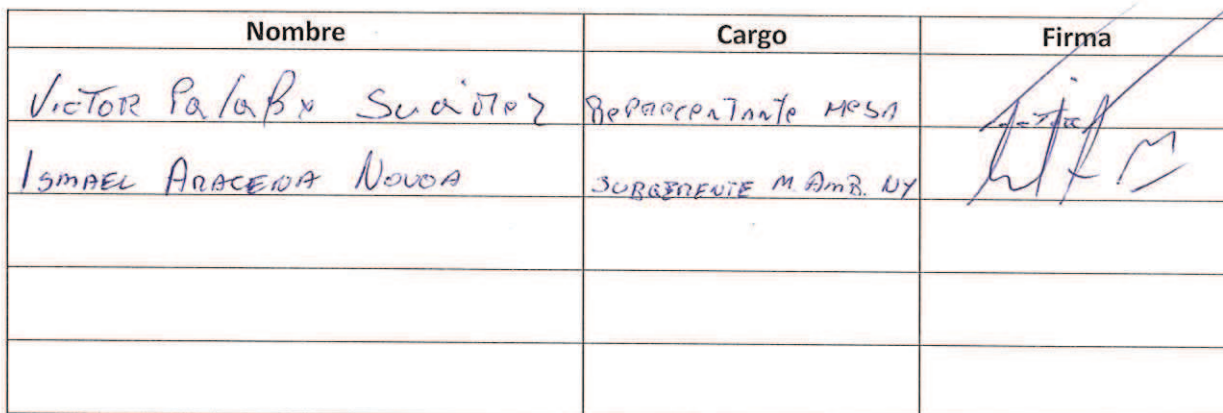 Nombre Cargo Firma
Victor Palaβx Suárez Representante Mesa
ISMAEL ARACENA NOVOA SUBGERENTE M. AMB. NY